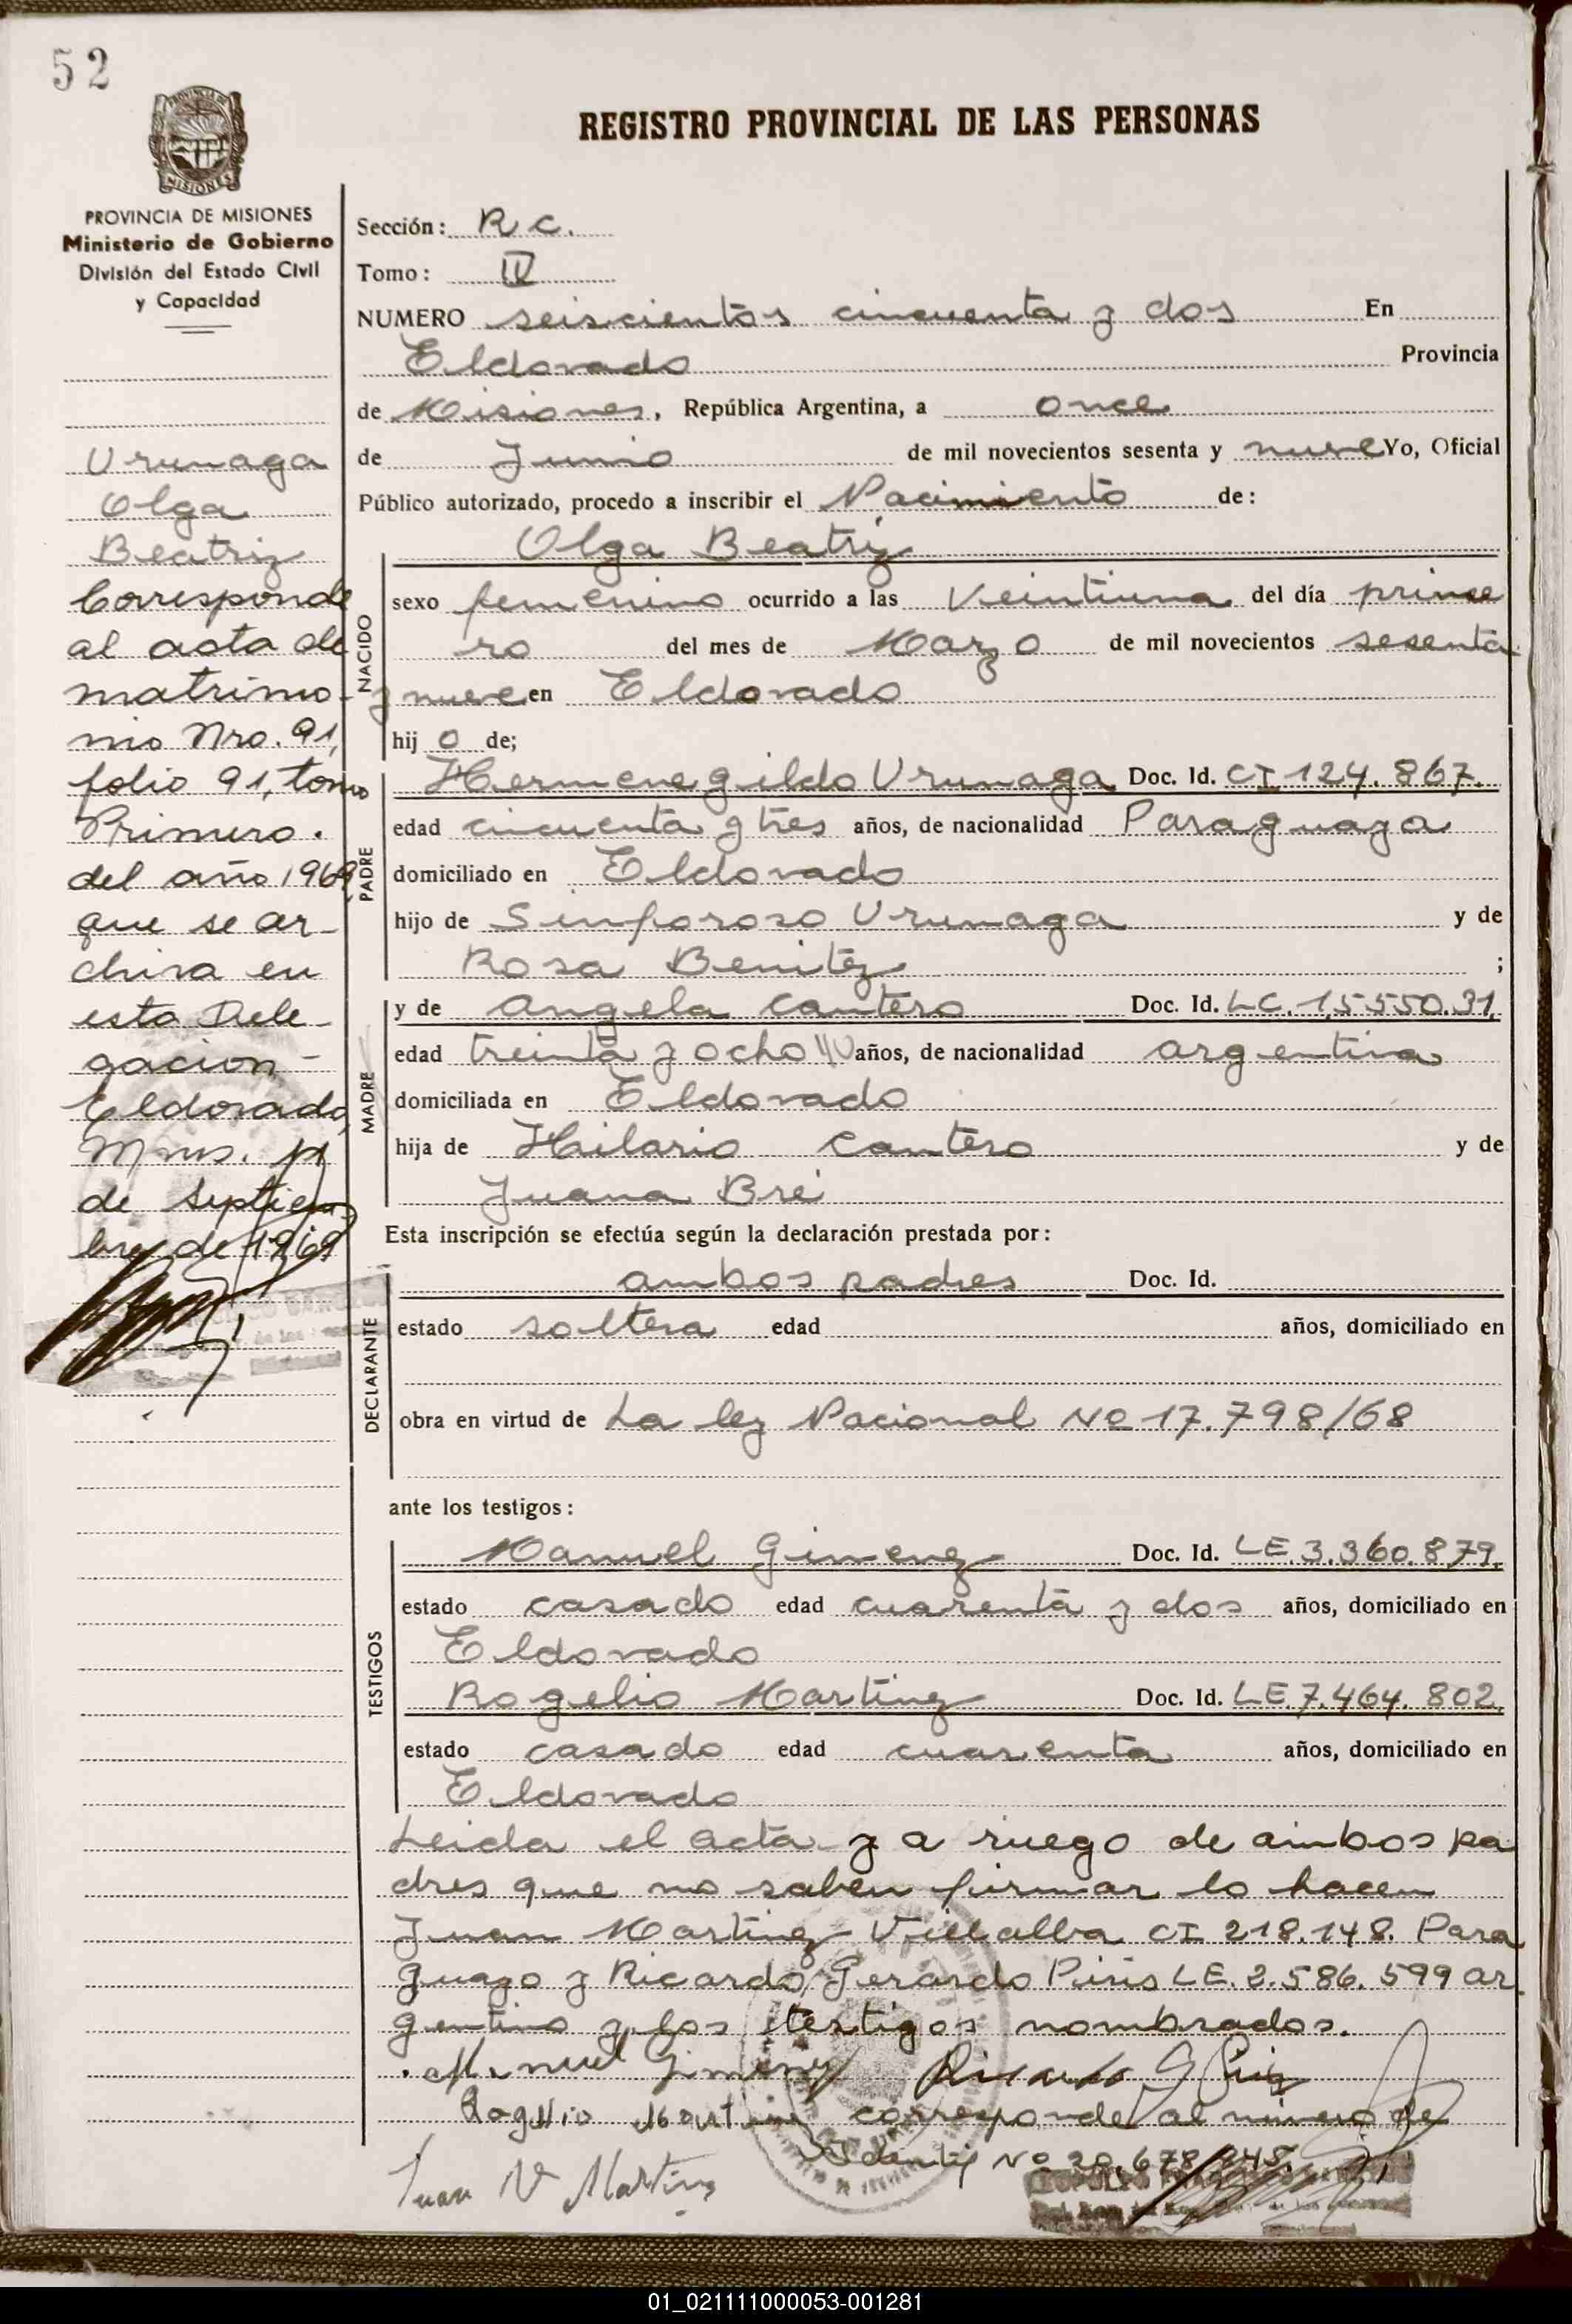 52
PROVINCIA DE
MISIONES
PROVINCIA DE MISIONES
Ministerio de Gobierno
División del Estado Civil
y Capacidad
Urunaga
Olga
Beatriz
Corresponde
al acta de
matrimo-
nio Nro. 91,
folio 91, tomo
Primero.
del año 1969,
que se ar-
chiva en
esta Dele-
gacion -
Eldorado,
Mnes.
de Septiem
bre de 1969
REGISTRO PROVINCIAL DE LAS PERSONAS
Sección: R.C.
Tomo: IV
NUMERO seiscientos cincuenta y dos En
Eldorado Provincia
de Misiones, República Argentina, a once
de Junio de mil novecientos sesenta y nueve Yo, Oficial
Público autorizado, procedo a inscribir el Nacimiento de:
Olga Beatriz
NACIDO
sexo femenino ocurrido a las Veintiuna del día prime
ro del mes de Marzo de mil novecientos sesenta
y nueve en Eldorado
hij o de;
PADRE
Hermenegildo Urunaga Doc. Id. CI 124.867.
edad cincuenta y tres años, de nacionalidad Paraguaya
domiciliado en Eldorado
hijo de Sinforoso Urunaga y de
Rosa Benitez ;
MADRE
y de Angela Cantero Doc. Id. LC. 1,5550.31,
edad treinta y ocho años, de nacionalidad argentina
domiciliada en Eldorado
hija de Hilario Cantero y de
Juana Bré
Esta inscripción se efectúa según la declaración prestada por:
DECLARANTE
ambos padres Doc. Id.
estado soltera edad años, domiciliado en
obra en virtud de La ley Nacional Nº 17.798/68
ante los testigos:
TESTIGOS
Manuel Gimenez Doc. Id. LE.3.360.879,
estado casado edad cuarenta y dos años, domiciliado en
Eldorado
Rogelio Martinez Doc. Id. LE.7.464.802,
estado casado edad cuarenta años, domiciliado en
Eldorado
Leida el acta y a ruego de ambos pa
dres que no saben firmar lo hacen
Juan Martinez Villalba CI 218.148. Para
guayo y Ricardo Gerardo Piris LE. 2.586.599 ar
gentino y los testigos nombrados.
Manuel Gimenez Ricardo G Piris
Rogelio Martinez corresponde al número de
Identif Nº 20.678.
Juan V Martinez
01_021111000053-001281